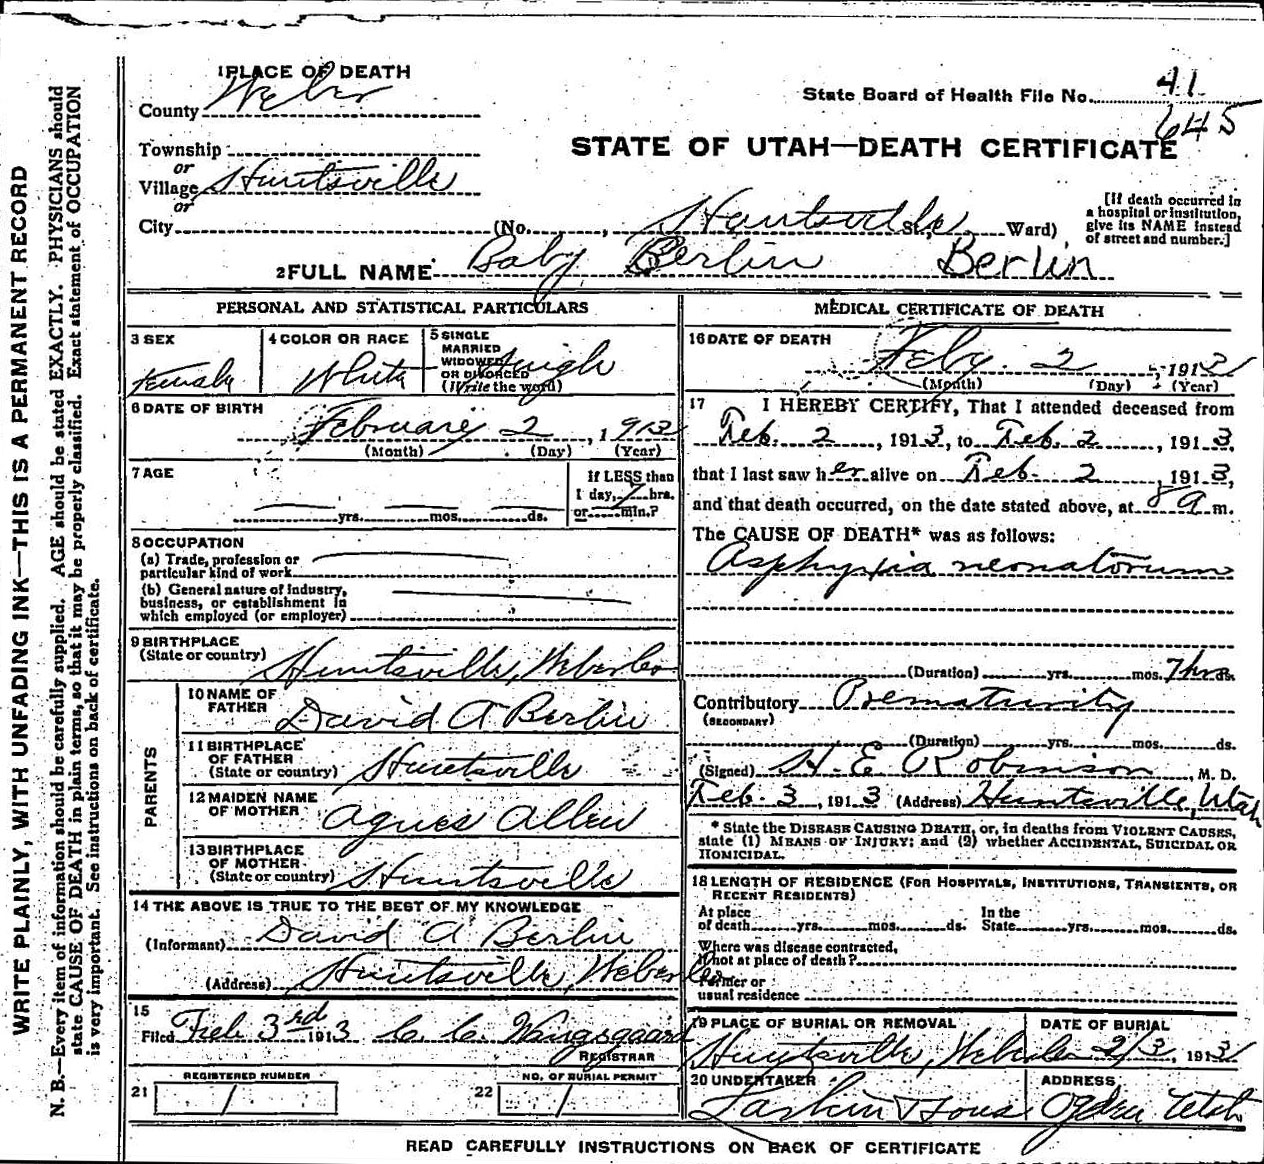 WRITE PLAINLY, WITH UNFADING INK—THIS IS A PERMANENT RECORD
N. B.—Every item of information should be carefully supplied. AGE should be stated EXACTLY. PHYSICIANS should
state CAUSE OF DEATH in plain terms, so that it may be properly classified. Exact statement of OCCUPATION
is very important. See instructions on back of certificate.
1 PLACE OF DEATH
County Weber
Township
or
Village Huntsville
or
City (No. , Huntsville St., Ward)
State Board of Health File No. 41
645
STATE OF UTAH—DEATH CERTIFICATE
[If death occurred in
a hospital or institution,
give its NAME instead
of street and number.]
2 FULL NAME Baby Berlin Berlin
PERSONAL AND STATISTICAL PARTICULARS
3 SEX
Female
4 COLOR OR RACE
White
5 SINGLE
MARRIED
WIDOWED
OR DIVORCED
(Write the word)
Single
6 DATE OF BIRTH
February 2, 1913
(Month) (Day) (Year)
7 AGE
yrs. mos. ds.
If LESS than
1 day, 7 hrs.
or min.?
8 OCCUPATION
(a) Trade, profession or
particular kind of work
(b) General nature of industry,
business, or establishment in
which employed (or employer)
9 BIRTHPLACE
(State or country) Huntsville, Weber Co
PARENTS
10 NAME OF
FATHER David A Berlin
11 BIRTHPLACE
OF FATHER
(State or country) Huntsville
12 MAIDEN NAME
OF MOTHER Agnes Allen
13 BIRTHPLACE
OF MOTHER
(State or country) Huntsville
14 THE ABOVE IS TRUE TO THE BEST OF MY KNOWLEDGE
(Informant) David A Berlin
(Address) Huntsville, Weber Co
15
Filed Feb 3rd 1913 C. C. Wangsgaard
REGISTRAR
REGISTERED NUMBER
21
NO. OF BURIAL PERMIT
22
MEDICAL CERTIFICATE OF DEATH
16 DATE OF DEATH
Feby. 2, 1913
(Month) (Day) (Year)
17 I HEREBY CERTIFY, That I attended deceased from
Feb. 2, 1913, to Feb. 2, 1913,
that I last saw her alive on Feb. 2, 1913,
and that death occurred, on the date stated above, at 8 a m.
The CAUSE OF DEATH* was as follows:
Asphyxia neonatorum
(Duration) yrs. mos. 7 hrs ds.
Contributory Prematurity
(SECONDARY)
(Duration) yrs. mos. ds.
(Signed) H. E Robinson, M. D.
Feb. 3, 1913 (Address) Huntsville, Utah
* State the DISEASE CAUSING DEATH, or, in deaths from VIOLENT CAUSES,
state (1) MEANS OF INJURY; and (2) whether ACCIDENTAL, SUICIDAL OR
HOMICIDAL.
18 LENGTH OF RESIDENCE (FOR HOSPITALS, INSTITUTIONS, TRANSIENTS, OR
RECENT RESIDENTS)
At place
of death yrs. mos. ds. In the
State yrs. mos. ds.
Where was disease contracted,
if not at place of death?
Former or
usual residence
19 PLACE OF BURIAL OR REMOVAL
Huntsville, Weber Co
DATE OF BURIAL
2/3, 1913
20 UNDERTAKER
Larkin & Sons
ADDRESS
Ogden Utah
READ CAREFULLY INSTRUCTIONS ON BACK OF CERTIFICATE